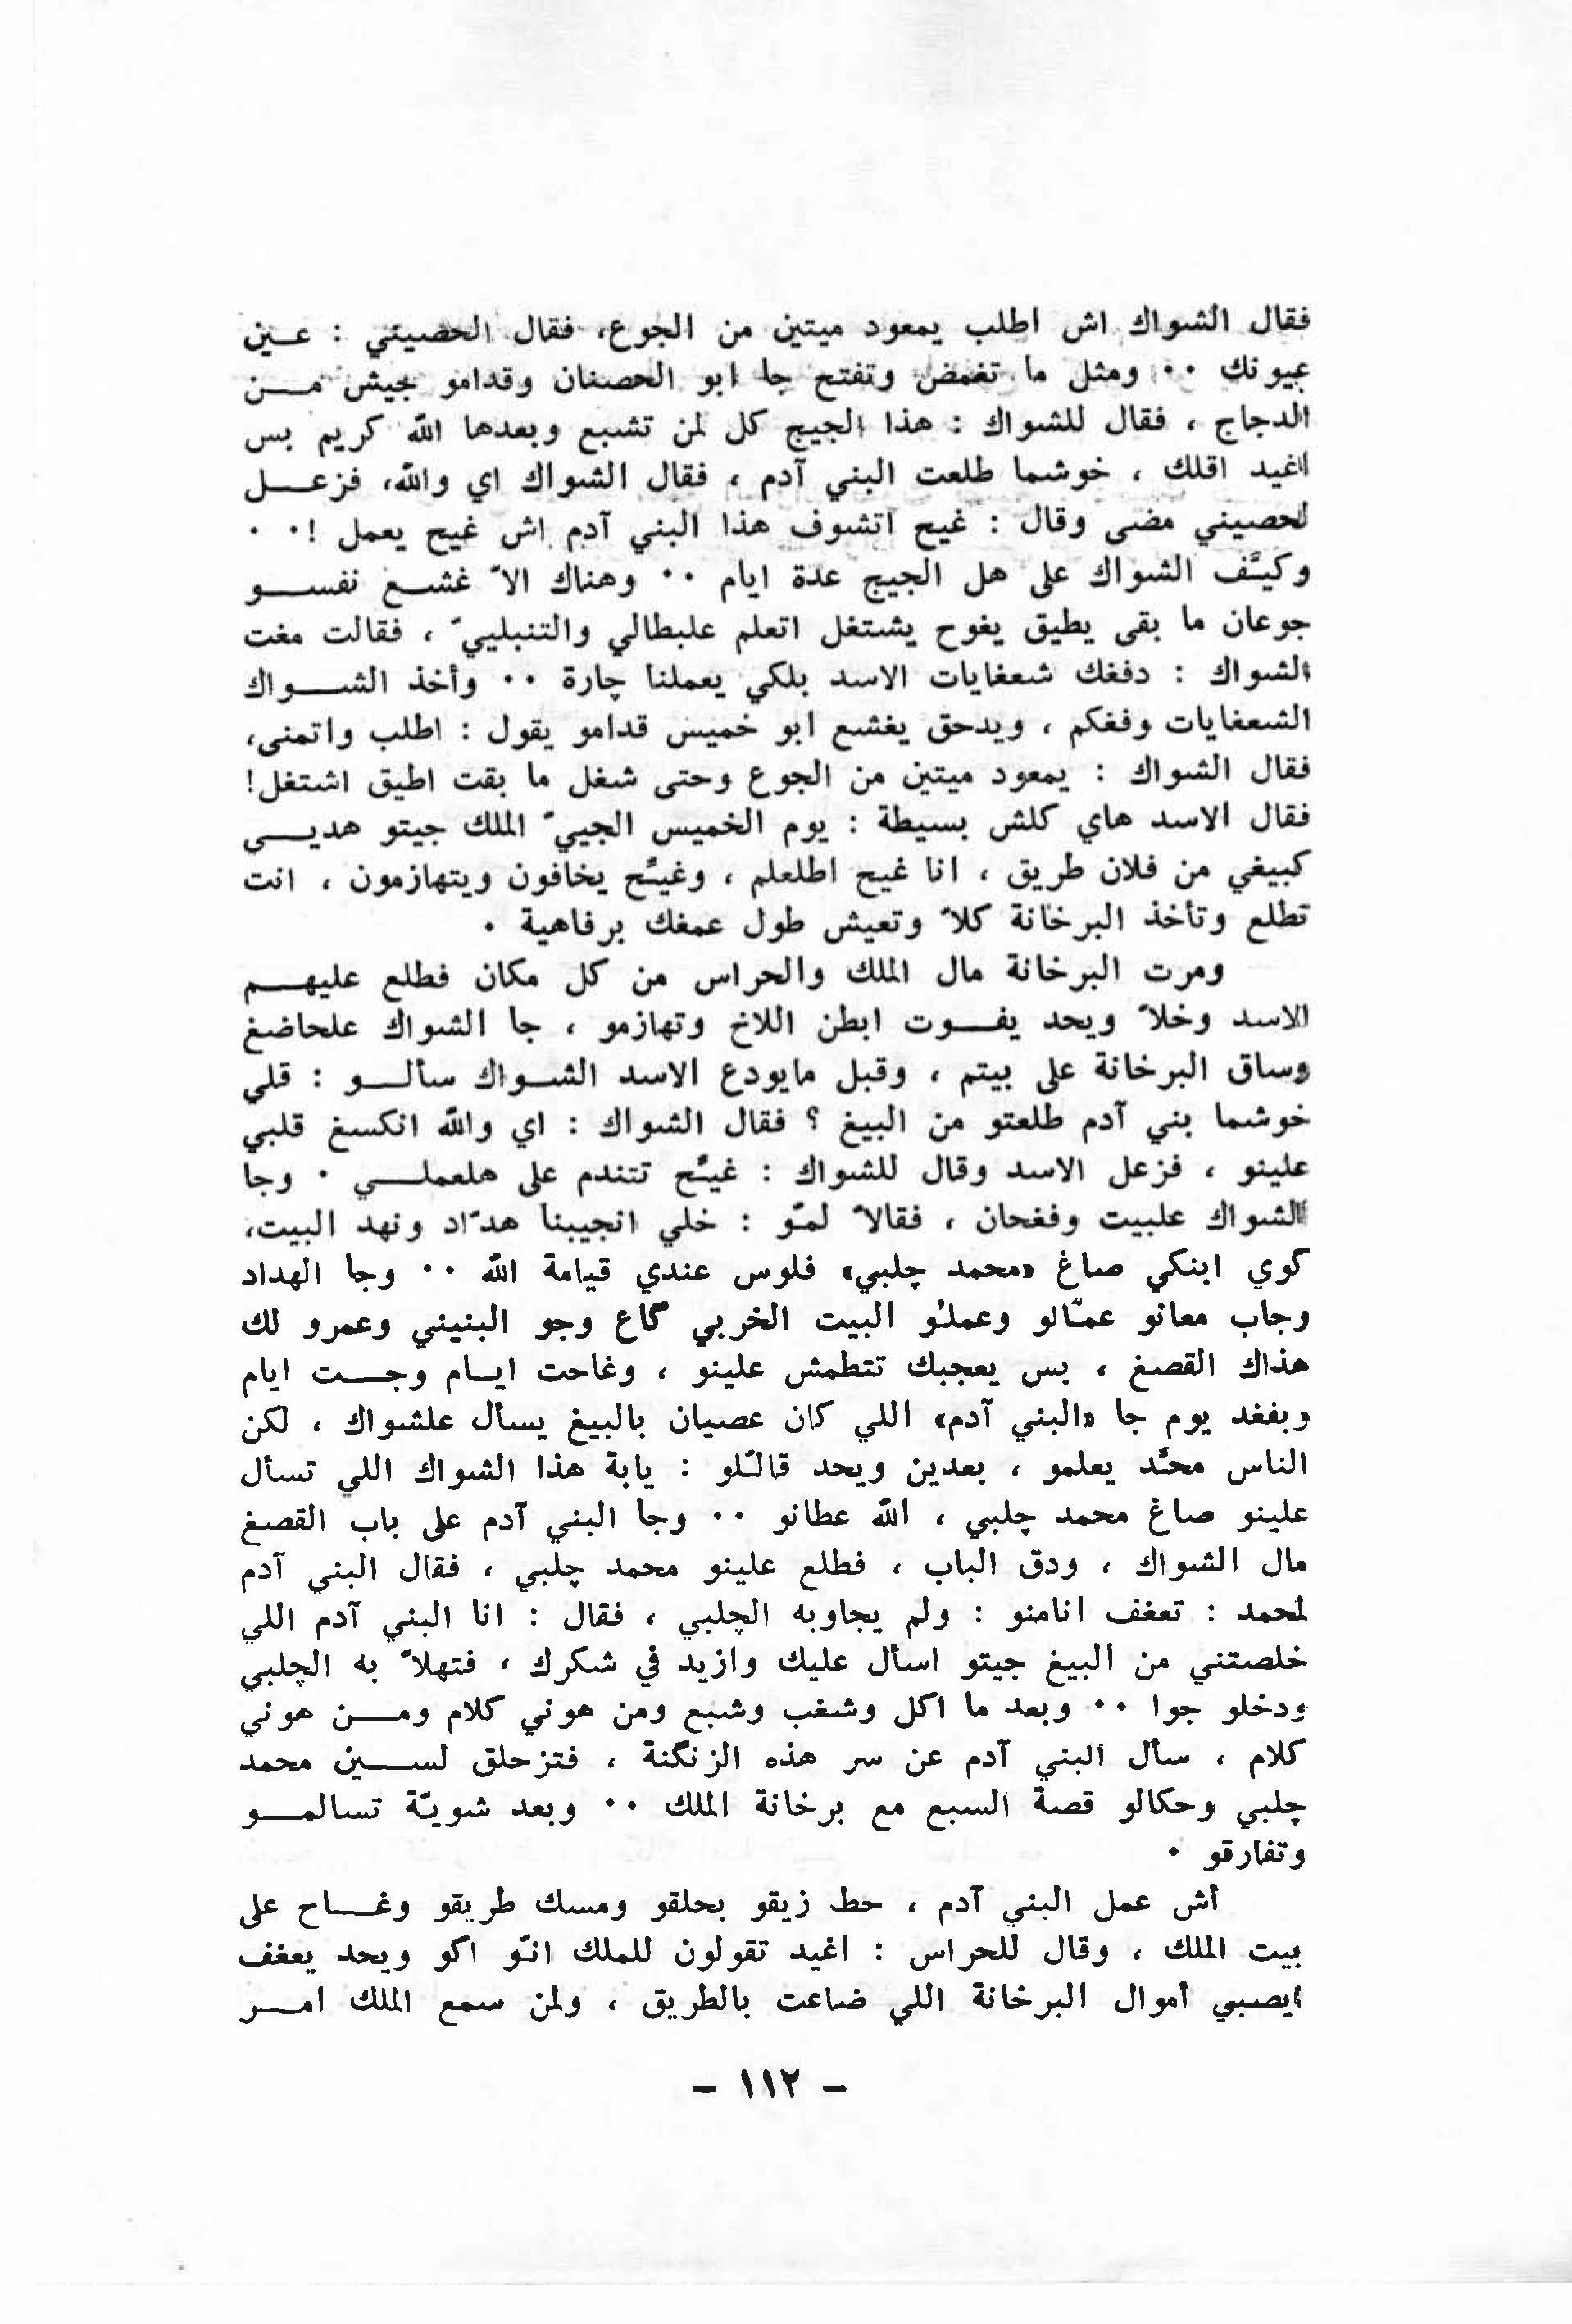 فقال الشواك اش اطلب يمعود ميتين من الجوع، فقال الحصيني : عين
عيونك ٠٠ ومثل ما تغمض وتفتح جا ابو الحصنان وقدامو جيش من
الدجاج ، فقال للشواك : هذا الجيج كل لمن تشبع وبعدها الله كريم بس
اغيد اقلك ، خوشما طلعت البني آدم ، فقال الشواك اي والله، فزعل
لحصيني مضى وقال : غيح اتشوف هذا البني آدم اش غيح يعمل !٠٠
وكيَّف الشواك على هل الجيج عدة ايام ٠٠ وهناك الاّ غشع نفسو
جوعان ما بقى يطيق يغوح يشتغل اتعلم علبطالي والتنبلييّ ، فقالت مغت
الشواك : دفغك شعغايات الاسد بلكي يعملنا چارة ٠٠ وأخذ الشواك
الشعغايات وفغكم ، ويدحق يغشع ابو خميس قدامو يقول : اطلب واتمنى،
فقال الشواك : يمعود ميتين من الجوع وحتى شغل ما بقت اطيق اشتغل!
فقال الاسد هاي كلش بسيطة : يوم الخميس الجييّ الملك جيتو هديي
كبيغي من فلان طريق ، انا غيح اطلعلم ، وغيّح يخافون ويتهازمون ، انت
تطلع وتأخذ البرخانة كلاّ وتعيش طول عمغك برفاهية ٠
ومرت البرخانة مال الملك والحراس من كل مكان فطلع عليهم
الاسد وخلاّ ويحد يفوت ابطن اللاخ وتهازمو ، جا الشواك علحاضغ
وساق البرخانة على بيتم ، وقبل مايودع الاسد الشواك سألو : قلي
خوشما بني آدم طلعتو من البيغ ؟ فقال الشواك : اي والله انكسغ قلبي
علينو ، فزعل الاسد وقال للشواك : غيّح تتندم على هلعملي ٠ وجا
الشواك علبيت وفغحان ، فقالاّ لمّو : خلي انجيبنا هدّاد ونهد البيت،
كوي ابنكي صاغ «محمد چلبي» فلوس عندي قيامة الله ٠٠ وجا الهداد
وجاب معانو عمّالو وعملو البيت الخربي گاع وجو البنيني وعمرو لك
هذاك القصغ ، بس يعجبك تتطمش علينو ، وغاحت ايام وجت ايام
وبفغد يوم جا «البني آدم» اللي كان عصيان بالبيغ يسأل علشواك ، لكن
الناس محّد يعلمو ، بعدين ويحد قالّلو : يابة هذا الشواك اللي تسأل
علينو صاغ محمد چلبي ، الله عطانو ٠٠ وجا البني آدم على باب القصغ
مال الشواك ، ودق الباب ، فطلع علينو محمد چلبي ، فقال البني آدم
لمحمد : تعغف انامنو : ولم يجاوبه الچلبي ، فقال : انا البني آدم اللي
خلصتني من البيغ جيتو اسأل عليك وازيد في شكرك ، فتهلاّ به الچلبي
ودخلو جوا ٠٠ وبعد ما اكل وشغب وشبع ومن هوني كلام ومن هوني
كلام ، سأل البني آدم عن سر هذه الزنگنة ، فتزحلق لسين محمد
چلبي وحكالو قصة السبع مع برخانة الملك ٠٠ وبعد شويّة تسالمو
وتفارقو ٠
أش عمل البني آدم ، حط زيقو بحلقو ومسك طريقو وغاح على
بيت الملك ، وقال للحراس : اغيد تقولون للملك انّو اكو ويحد يعغف
ايصبي أموال البرخانة اللي ضاعت بالطريق ، ولمن سمع الملك امر
– ١١٢ –